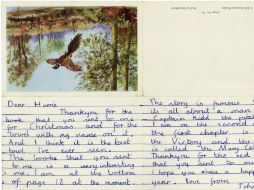 Dear Hami
Thankyou for the
book that you sent to me
for Christmas and for the
towel with my name on it
And I think it is the best
book I've ever seen.
The books that you sent
to me is a very interesting
one. I am at the bottom
of page 18 at the moment.
The story is famous
its all about a man
Captain Kidd the pirate
I am on the second
the first chapter is
the Victory and the
is called "The Mary
Thankyou for the red
that you sent to me
I hope you have a happy
year. love from